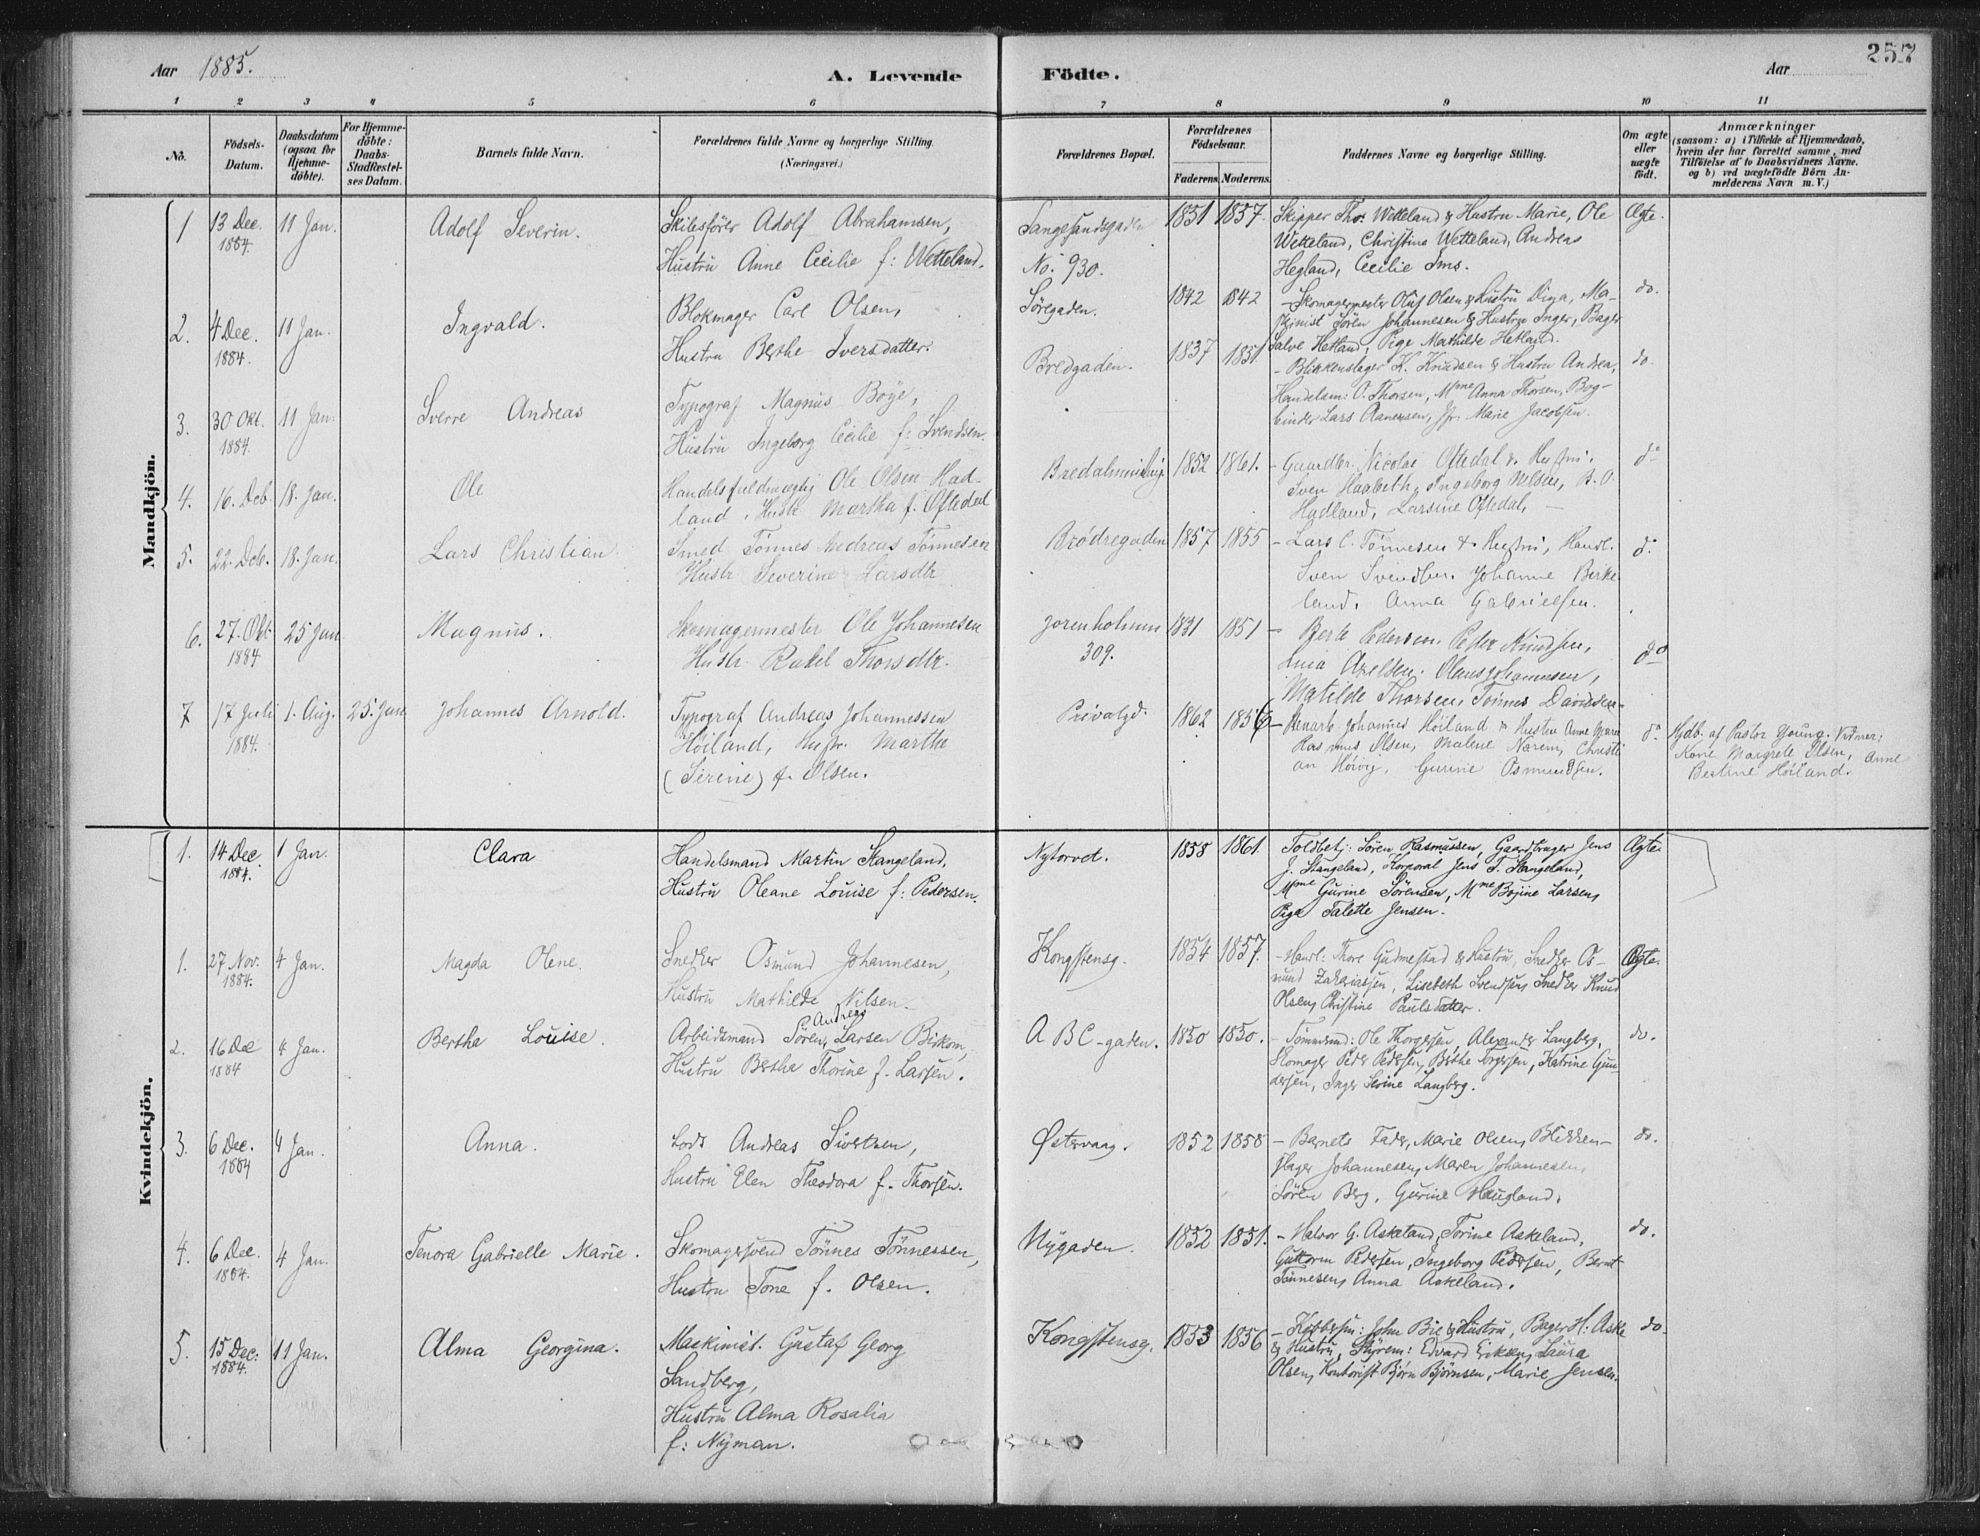 257
Aar 1885.
A. Levende Födte.
Aar
1 2 3 4 5 6 7 8 9 10 11
No.
Födsels-Datum.
Daabsdatum (ogsaa for Hjemme-döbte).
For Hjemme-döbte: Daabs-Stadfæstel-ses Datum.
Barnets fulde Navn.
Forældrenes fulde Navne og borgerlige Stilling.
(Næringsvei.)
Forældrenes Bopæl.
Forældrenes Födselsaar.
Faderens. Moderens.
Faddernes Navne og borgerlige Stilling.
Om ægte eller uægte födt.
Anmærkninger
(saasom: a) i Tilfælde af Hjemmedaab,
hvem der har forrettet samme, med
Tilföielse af to Daabsvidners Navne.
og b) ved uægtefödte Börn An-
melderens Navn m. V.)
Mandkjön.
1 13 Dec. 1884. 11 Jan. Adolf Severin.
Skibsförer Adolf Abrahamsen,
Hustru Anne Cecilie f: Wetteland.
Langesandsgaden
No. 930.
1851 1857.
Skipper Thor Wetteland & Hustru Marie, Ole
Wetteland, Christine Wetteland, Andreas
Hegland, Cecilie Ims.
Ægte.
2. 4 Dec. 1884. 11 Jan. Ingvald.
Blokmager Carl Olsen,
Hustru Berthe Iversdatter.
Söregaden.
1842 1842
- Skomagermester Oluf Olsen & Hustru Diga, Ma-
skinist Sören Johannesen & Hustru Inger, Bager
Salve Hetland, Pige Mathilde Hetland.
do.
3. 30 Okt. 1884. 11 Jan. Sverre Andreas
Typograf Magnus Böye,
Hustru Ingeborg Cecilie f: Svendsen.
Bredgaden.
1837 1851.
- Blikkenslager K. Knudsen & Hustru Andrea,
Handelsm: O. Thorsen, Mme Anna Thorsen, Bog-
binder Lars Aanensen, Jfr. Marie Jacobsen.
do.
4. 16. Deb 18. Jan. Ole
Handelsfuldmægtig Ole Olsen Had-
land, Hustr Martha f. Oftedal
1852 1861.
- Gaardbr. Nicolai Oftedal & Hustru.
Sven Haabeth, Ingeborg Nilsen, B. O.
Hadland, Larsine Oftedal,
do
5. 22. Deb. 18. Jan. Lars Christian
Smed Tönnes Andreas Tönnesen
Hustr Severine Larsdtr
Brödregaden
1857 1855
- Lars C. Tönnesen & Hustru, Handl.
Sven Svendsen. Johanne Birke
land, Anna Gabrielsen.
do.
6. 27. Okt 1884 25 Jan Magnus.
Skomagermester Ole Johannesen
Hustr. Rakel Thorsdtr.
Jorenholmen
309.
1831 1851
- Berte Pedersen. Peder Knudsen,
Lina Axelsen. Olaus Johannesen,
Matilde Thorsen, Tönnes Davidsen
do
7 17 Juli 1884. 1. Aug. 25. Jan. Johannes Arnold.
Typograf Andreas Johannessen
Höiland, Hustr. Marthe
(Serine) f. Olsen.
Privatgd.
1862 1856
Johannes Höiland & Hustru Anne Marie
Rasmus Olsen, Malene Narem, Christi
an Höivig, Gurine Osmundsen.
do
Hjdb. af Pastor Young. Vidner:
Kare Margrete Olsen, Anne
Bertine Höiland.
Kvindekjön.
1. 14 Dec. 1884. 1 Jan. Clara
Handelsmand Martin Stangeland,
Hustru Oleane Louise f: Pedersen.
Nytorvet.
1858 1861.
Toldbetj: Sören Rasmussen, Gaardbruger Jens
J. Stangeland, Korporal Jens T. Stangeland,
Mme Gurine Sörensen, Mme Bojine Larsen,
Pige Talette Jensen.
Ægte.
1. 27 Nov. 1884. 4 Jan. Magda Olene.
Snedker Osmund Johannesen,
Hustru Mathilde Nilsen.
Kongstensg.
1854 1857.
- Haarl: Thore Gudmestad & Hustru, Snedker Os-
mund Zakariassen, Lisebeth Svendsen, Snedker Knud
Olsen, Christine Paulsdatter.
Ægte.
2. 16 Dec 1884 4 Jan. Bertha Louise.
Andreas
Arbeidsmand Sören Larsen Birkom,
Hustru Berthe Thorine f. Larsen.
A B C-gaden.
1850 1850.
- Tömmermd: Ole Thorgersen, Alexander Langberg,
Skomager Peder Pedersen, Berthe Torgersen, Katrine Gun-
dersen, Inger Serine Langberg.
do.
3. 6 Dec. 1884 4 Jan. Anna.
Lods Andreas Sivertsen,
Hustru Elen Theodora f. Thorsen.
Østervaag.
1852 1858
- Barnets Fader, Marie Olsen, Blikken-
slager Johannesen, Maren Johannesen,
Sören Berg, Gurine Haugland.
do.
4. 6 Dec. 1884. 4 Jan. Tenora Gabrielle Marie.
Skomagersvend Tönnes Tönnessen,
Hustru Tone f. Olsen.
Nygaden.
1852 1851.
- Halvor G. Askeland, Torine Askeland,
Guttorm Pedersen, Ingeborg Pedersen, Bernt
Tönnesen, Anna Askeland.
do.
5. 15 Dec: 1884. 11 Jan. Alma Georgina.
Maskinist. Gustaf Georg
Sandberg,
Hustru Alma Rosalia
f: Nyman.
Kongstensg.
1853 1856
- Kobbersm: John Bie & Hustru, Bager H: Aske
& Hustru, Styrem: Edvard Eriksen, Laura
Olsen, Kontorist Björn Björnsen, Marie Jensen.
do.